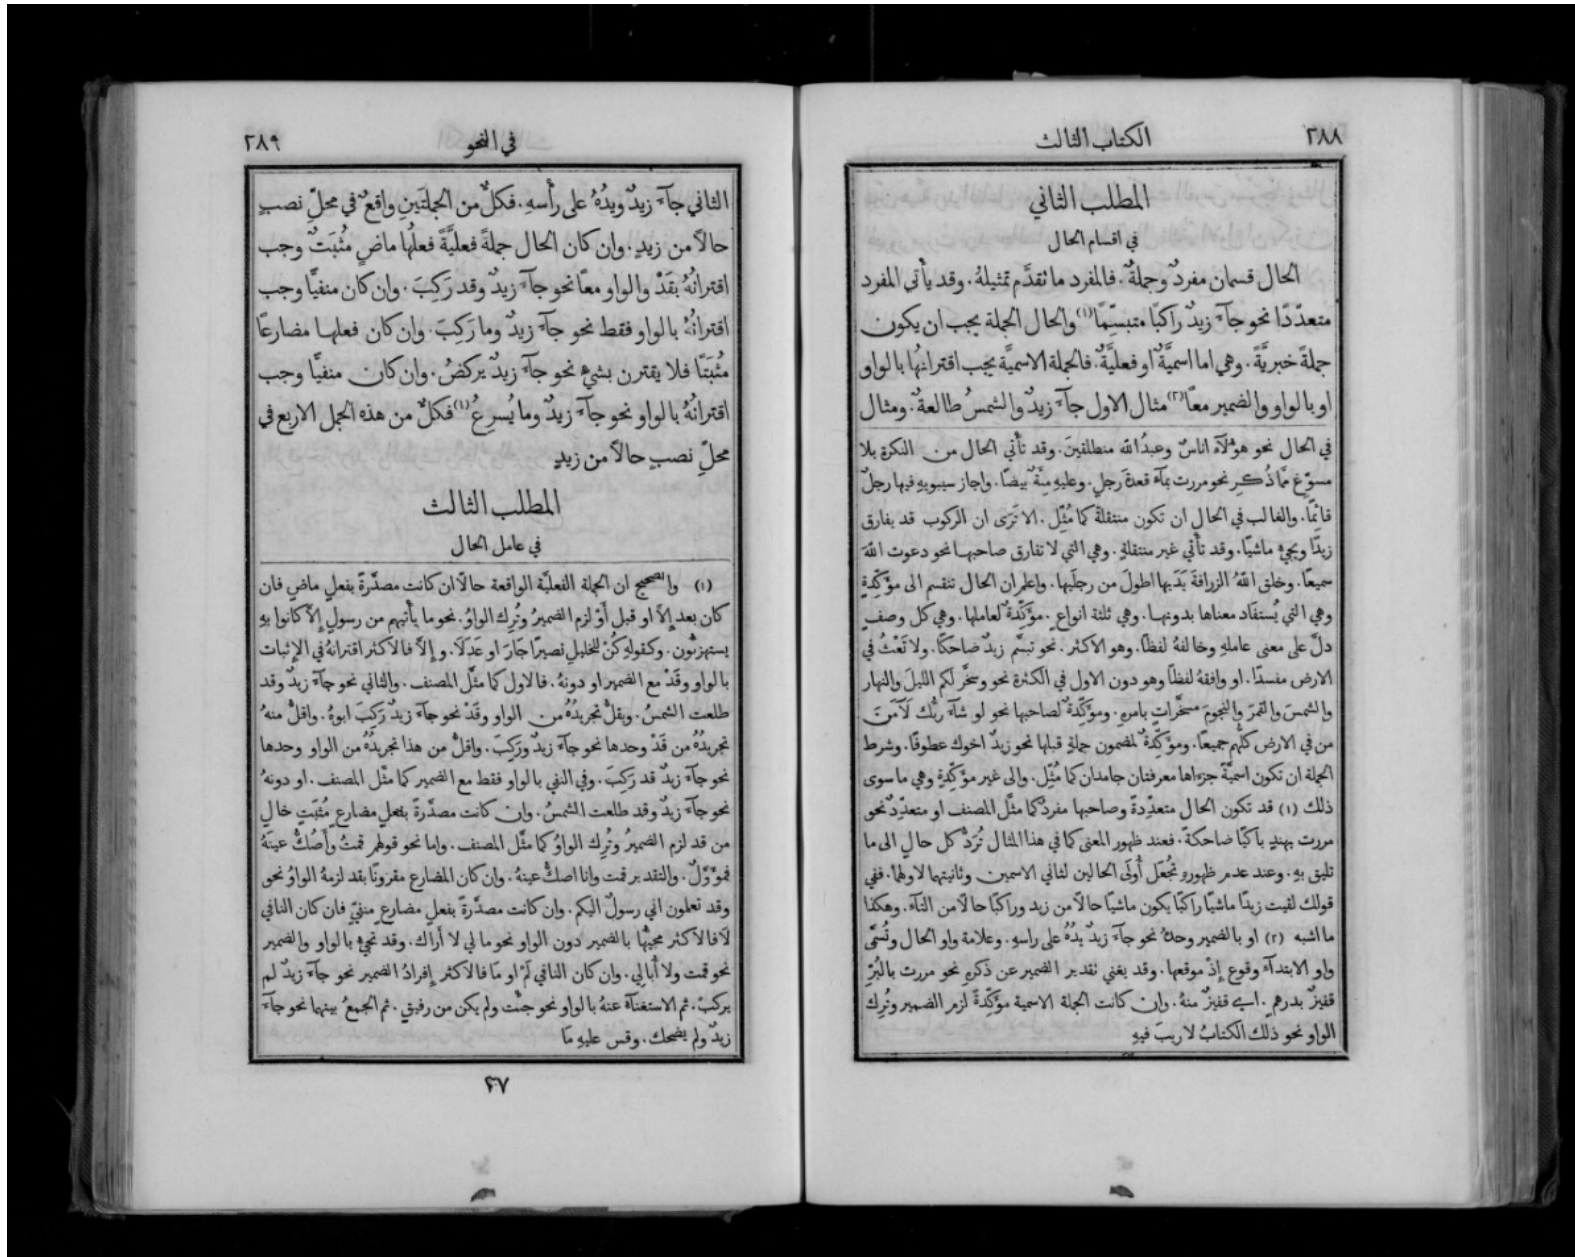 ٢٨٨
الكتاب الثالث
المطلب الثاني
في اقسام الحال
الحال قسمان مفردٌ وجملةٌ. فالمفرد ما تقدَّم تمثيلهُ. وقد يأْتي المفرد
متعدّدًا نحو جآءَ زيدٌ راكبًا متبسّمًا(١) والحال الجملة يجب ان يكون
جملةً خبريَّةً. وهي اما اسميَّةٌ او فعليَّةٌ. فالجملة الاسميَّة يجب اقترانهُا بالواو
او بالواو والضمير معًا(٢) مثال الاول جآءَ زيدٌ والشمسُ طالعةٌ. ومثال
في الحال نحو هؤُلآءِ اناسٌ وعبدُ الله منطلقينَ. وقد تأْتي الحال من النكرة بلا
مسوّغ ممَّا ذُكر نحو مررت بمآءٍ قعدةَ رجلٍ. وعليهِ مِئَةٌ بيضًا. واجاز سيبويهِ فيها رجلٌ
قائمًا. والغالب في الحال ان تكون منتقلةً كما مُثِّل. الا تَرَى ان الركوب قد يفارق
زيدًا ويجيءُ ماشيًا. وقد تأْتي غير منتقلةٍ. وهي التي لا تفارق صاحبها نحو دعوت اللهَ
سميعًا. وخلق اللهُ الزرافةَ يَدَيها اطولَ من رجلَيها. واعلم ان الحال تنقسم الى مؤَكِّدةٍ
وهي التي يُستفَاد معناها بدونها. وهي ثلثة انواعٍ. مؤَكِّدةٌ لعاملها. وهي كل وصفٍ
دلَّ على معنى عاملهِ وخالفهُ لفظًا. وهو الاكثر. نحو تبسَّم زيدٌ ضاحكًا. ولا تَعْثُ في
الارض مفسدًا. او وافقهُ لفظًا وهو دون الاول في الكثرة نحو وسخَّر لكم الليلَ والنهار
والشمسَ والقمرَ والنجومَ مسخَّراتٍ بامرهِ. ومؤَكِّدةٌ لصاحبها نحو لو شآءَ ربُّك لَآمَنَ
من في الارض كلُّهم جميعًا. ومؤَكِّدةٌ لمضمون جملةٍ قبلها نحو زيدٌ اخوك عطوفًا. وشرط
الجملة ان تكون اسميَّةً جزءَاها معرفتان جامدان كما مُثِّل. والى غير مؤَكِّدةٍ وهي ما سوى
ذلك (١) قد تكون الحال متعدِّدةً وصاحبها مفردٌ كما مثَّل المصنف او متعدِّدٌ نحو
مررت بهندٍ باكيًا ضاحكةً. فعند ظهور المعنى كما في هذا المثال تُرَدُّ كل حالٍ الى ما
تليق بهِ. وعند عدم ظهورهِ تُجعَل أُولَى الحالين لثاني الاسمين وثانيتهما لاولهما. ففي
قولك لقيت زيدًا ماشيًا راكبًا يكون ماشيًا حالًا من زيد وراكبًا حالًا من التآءِ. وهكذا
ما اشبه (٢) او بالضمير وحدهُ نحو جآءَ زيدٌ يدُهُ على راسهِ. وعلامة واو الحال وتُسمَّى
واو الابتدآءِ وقوع إِذْ موقعها. وقد يغني تقدير الضمير عن ذكرهِ نحو مررت بالبُرِّ
قفيزٌ بدرهمٍ. اي قفيزٌ منهُ. وان كانت الجملة الاسمية مؤَكِّدةً لزم الضمير وتُرِك
الواو نحو ذلك الكتابُ لا ريبَ فيهِ
في النحو
٢٨٩
الثاني جآءَ زيدٌ ويدُهُ على رأْسهِ. فكلٌّ من الجملتَينِ واقعٌ في محلِّ نصبٍ
حالًا من زيدٍ. وان كان الحال جملةً فعليَّةً فعلُها ماضٍ مُثبَتٌ وجب
اقترانُهُ بقَدْ والواو معًا نحو جآءَ زيدٌ وقد رَكِبَ. وان كان منفيًّا وجب
اقترانُهُ بالواو فقط نحو جآءَ زيدٌ وما رَكِبَ. وان كان فعلها مضارعًا
مُثبَتًا فلا يقترن بشيءٍ نحو جآءَ زيدٌ يركضُ. وان كان منفيًّا وجب
اقترانُهُ بالواو نحو جآءَ زيدٌ وما يُسرِعُ(١) فكلٌّ من هذه الجمل الاربع في
محلِّ نصبٍ حالًا من زيدٍ
المطلب الثالث
في عامل الحال
(١) والصحيح ان الجملة الفعليَّة الواقعة حالًا ان كانت مصدَّرةً بفعلٍ ماضٍ فان
كان بعد إِلَّا او قبل أَوْ لزم الضميرُ وتُرِك الواوُ. نحو ما يأْتيهم من رسولٍ إِلَّا كانوا بهِ
يستهزئُون. وكقولهِ كُنْ للخليلِ نصيرًا جَارَ او عَدَلَا. وإِلَّا فالاكثر اقترانهُ في الإِثبات
بالواو وقَدْ مع الضمير او دونهُ. فالاول كما مثَّل المصنف. والثاني نحو جآءَ زيدٌ وقد
طلعت الشمسُ. ويقلُّ تجريدُهُ من الواو وقَدْ نحو جآءَ زيدٌ رَكِبَ ابوهُ. واقلُّ منهُ
تجريدُهُ من قَدْ وحدها نحو جآءَ زيدٌ ورَكِبَ. واقلُّ من هذا تجريدُهُ من الواو وحدها
نحو جآءَ زيدٌ قد رَكِبَ. وفي النفي بالواو فقط مع الضمير كما مثَّل المصنف. او دونهُ
نحو جآءَ زيدٌ وقد طلعت الشمسُ. وان كانت مصدَّرةً بفعلٍ مضارعٍ مُثبَتٍ خالٍ
من قد لزم الضميرُ وتُرِك الواوُ كما مثَّل المصنف. واما نحو قولهم قمتُ وأَصُكُّ عينَهُ
فمؤَوَّلٌ. والتقدير قمت وانا اصكُّ عينهُ. وان كان المضارع مقرونًا بقد لزمهُ الواوُ نحو
وقد تعلمون اني رسولُ اليكم. وان كانت مصدَّرةً بفعلٍ مضارعٍ منفيٍّ فان كان النافي
لَا فالاكثر مجيئُها بالضمير دون الواو نحو ما لي لا أَراك. وقد تجيءُ بالواو والضمير
نحو قمت ولا أُبالي. وان كان النافي لَمْ او مَا فالاكثر إِفرادُ الضمير نحو جآءَ زيدٌ لم
يركبْ. ثم الاستغنآءُ عنهُ بالواو نحو جئْت ولم يكن من رفيقٍ. ثم الجمعُ بينهما نحو جآءَ
زيدٌ ولم يضحك. وقس عليهِ مَا
٣٧